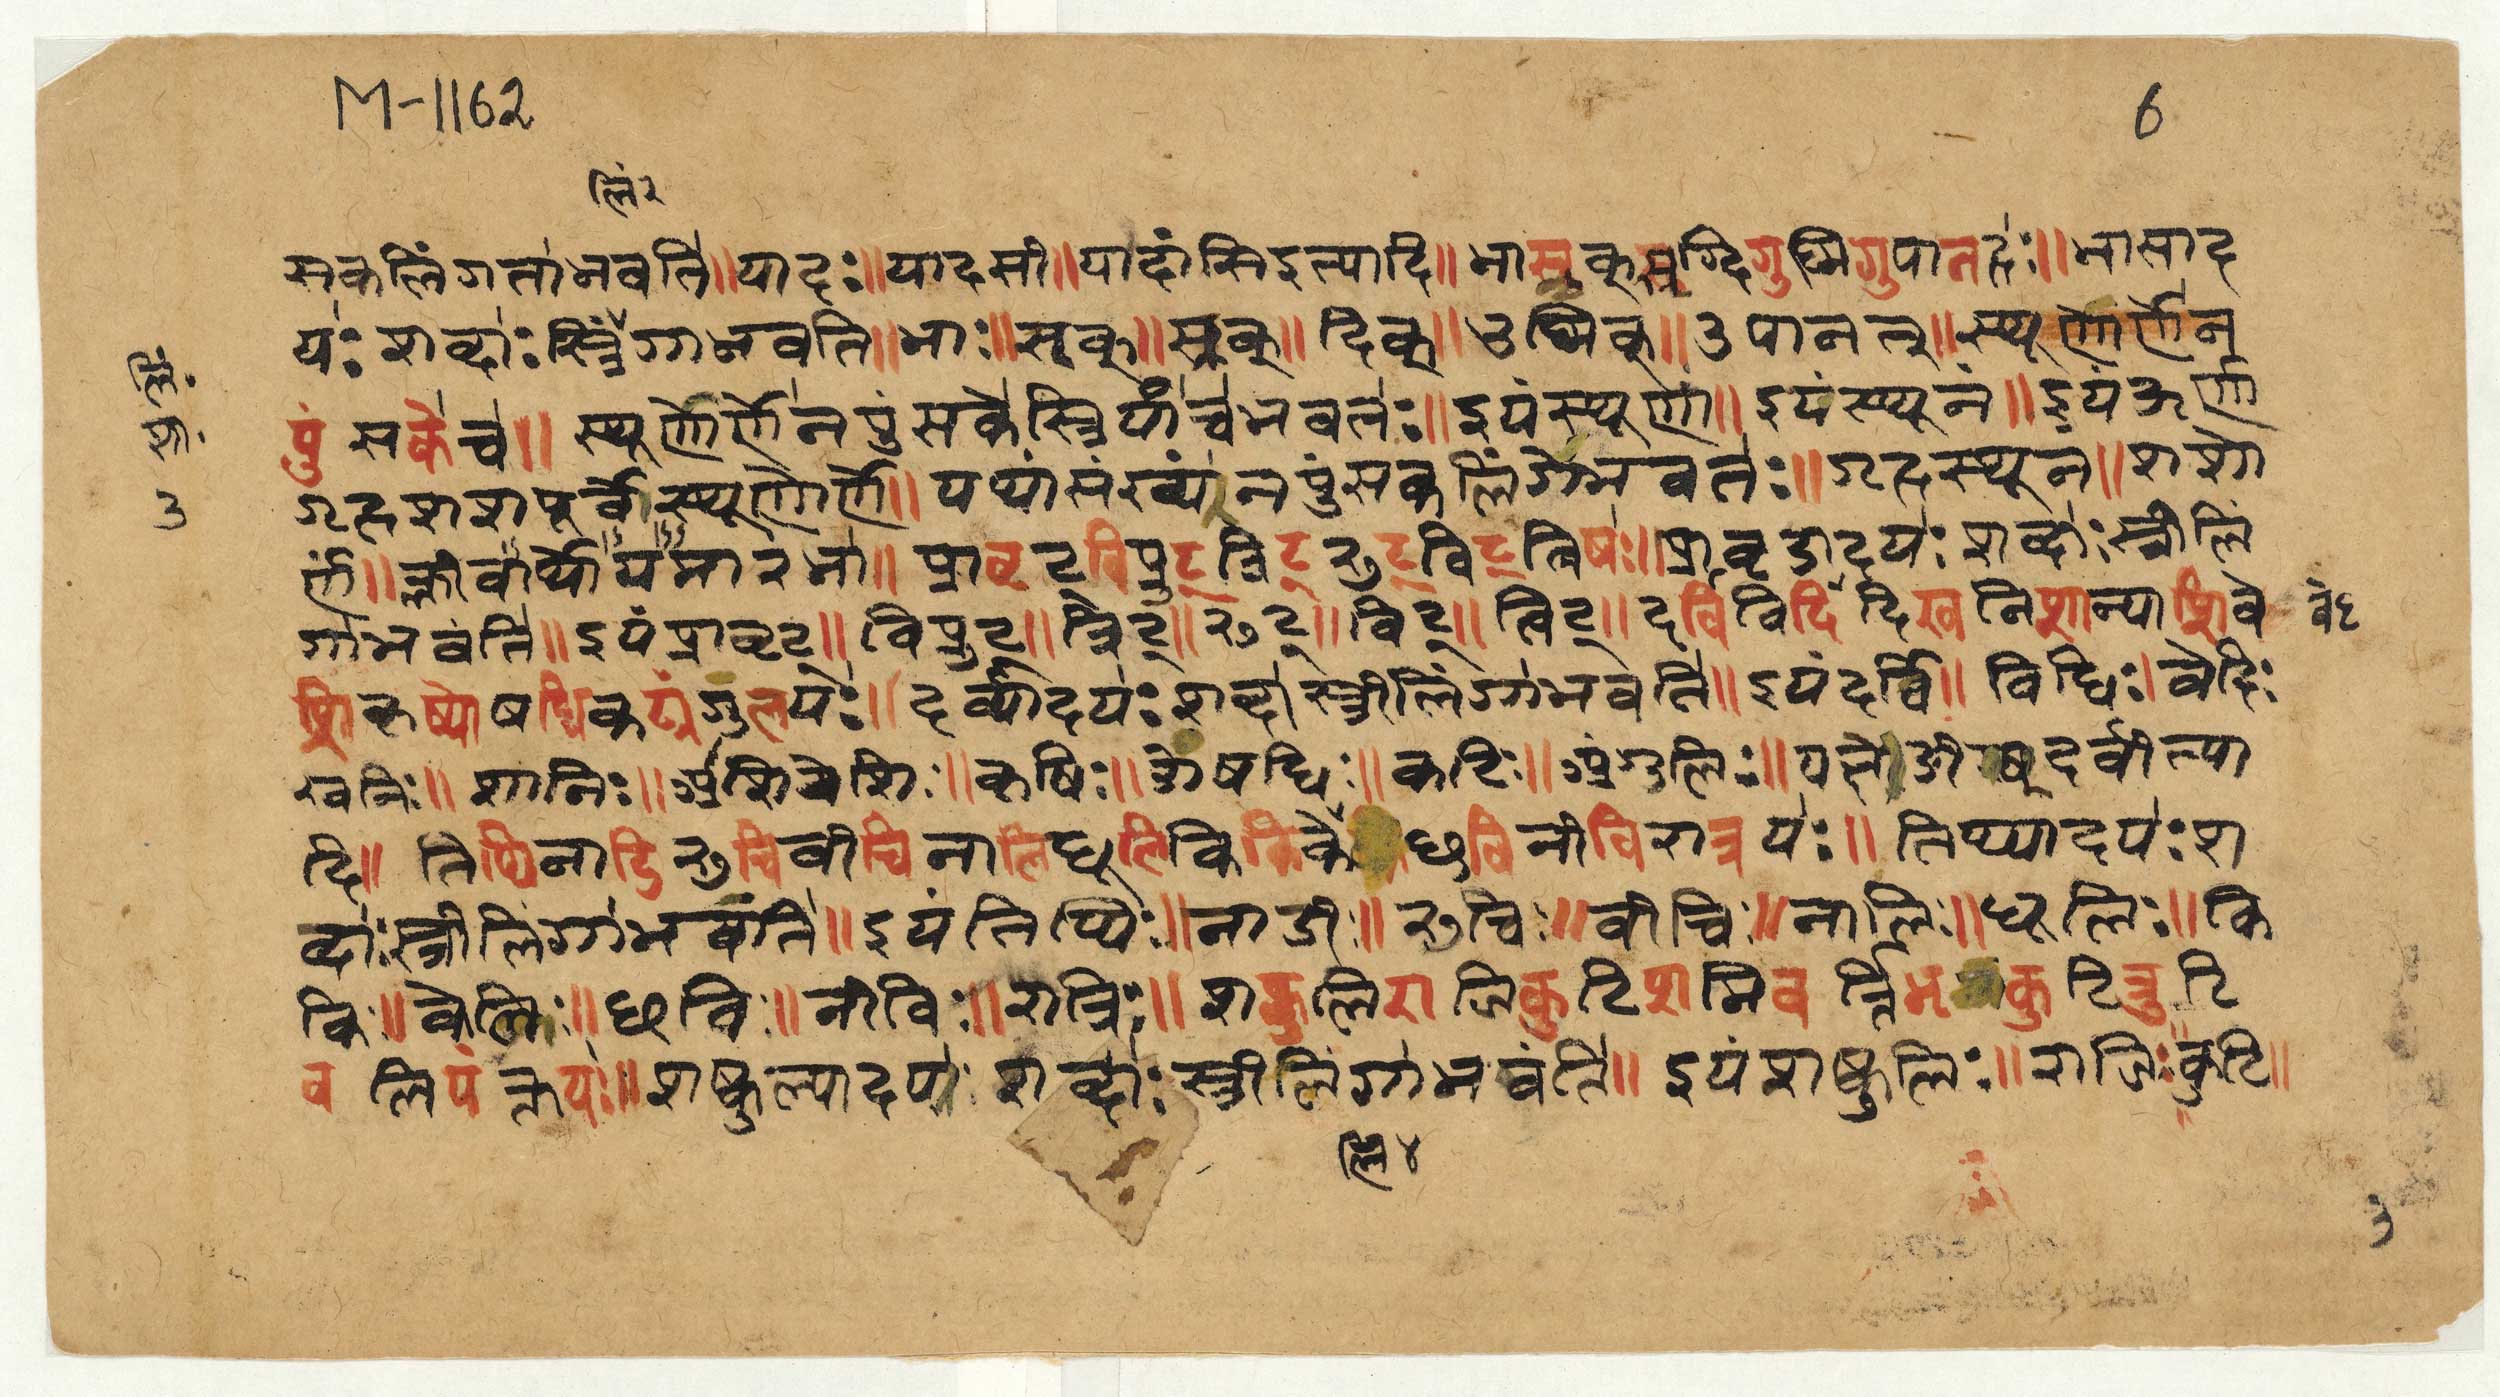 M-1162
6
लिं२
सकलिंगताभवति॥यादः॥यादसी॥यादांसिइत्यादि॥भास्रुक्स्रग्दिगुष्णिगुपानहः॥भासाद
यः शब्दाः स्त्रिंगाभवति॥भाः॥स्रुक्॥स्रक्॥दिक्॥उष्णिक्॥उपानत्॥स्थूणोर्णेन
लिं.
शा.
3
पुंसकेच॥ स्थूणोर्णेनपुंसकेस्त्रियांचभवतः॥इयंस्थूणा॥इयंस्थूनं॥इयंऊर्णा
गृहशशपूर्वेस्थूणोर्णे॥ यथासंख्यंनपुंसकलिंगेभवतः॥गृहस्थून॥शशो
र्णं॥ प्रावृट्विप्रुट्त्रिट्रुट्विट्त्विषः॥प्रावृडादयः शब्दाः स्त्रीलिं
गाभवंति॥इयंप्रावृट्॥विप्रुट्॥त्रिट्॥रुट्॥विट्॥त्विट्॥ दर्विविदिदिखनिशान्याश्रिवे
श्रिकृष्योषधिकट्यंगुलयः॥ दर्व्यादयः शब्दास्त्रीलिंगाभवति॥इयंदर्वि॥ विधिः।वेदिः
खनिः॥ शानिः॥ कृषिः॥ओषधिः॥कटिः॥अंगुलिः॥पक्षेङीष्दर्वीत्या
दि॥ तिथिनाडिरुचिवीचिनालिधूलिकिकिके छविनीविरात्रयः॥ तिथ्यादयः श
ब्दाः स्त्रीलिंगाभवंति॥इयंतिथिः॥नाडीः॥रुचिः॥वीचिः॥नालिः॥धूलिः॥कि
किः॥केलिः॥छविः॥नीविः॥रात्रिः॥ शष्कुलिराजिकुटिशमिवर्त्तिभ्रकुटित्रुटि
वलिपंक्तयः॥शष्कुल्यादयः शब्दाः स्त्रीलिंगाभवंति॥ इयंशष्कुलिः॥राजिः कुटि॥
लि४
3